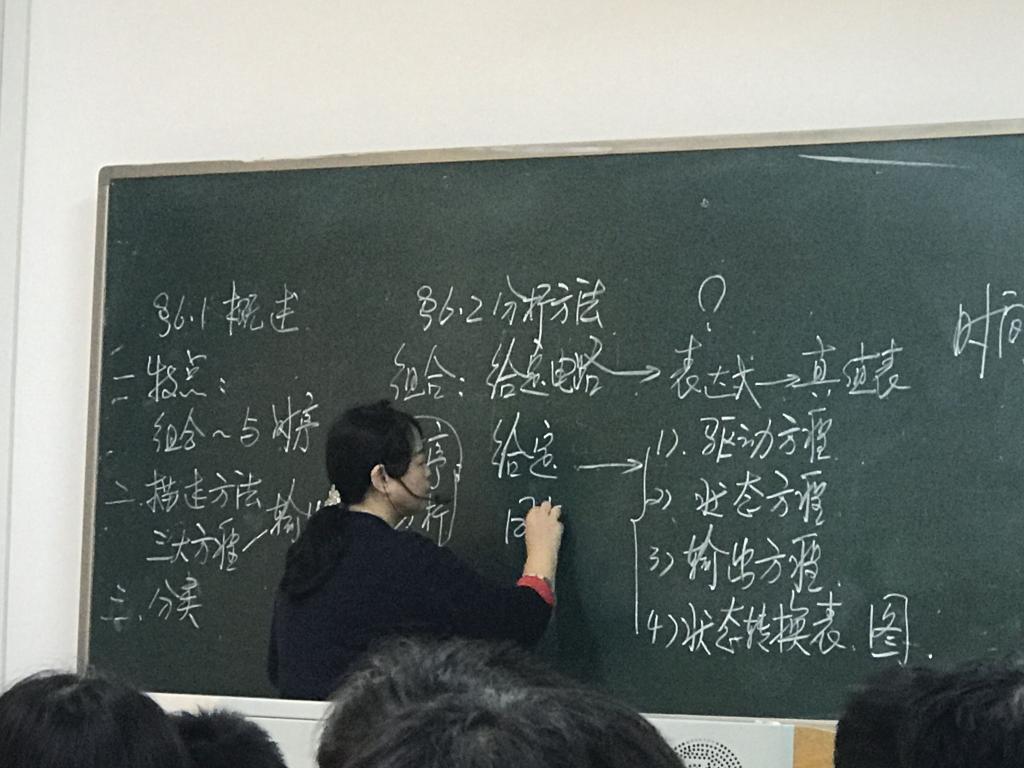 §6.1 概述
一 特点:
组合~与时序
二.描述方法
三大方程—输
三.分类
§6.2 分析方法
组合: 给定电路 → 表达式 → 真值表
?
序 给定 →
析
1). 驱动方程
2). 状态方程
3) 输出方程.
4) 状态转换表. 图.
时间